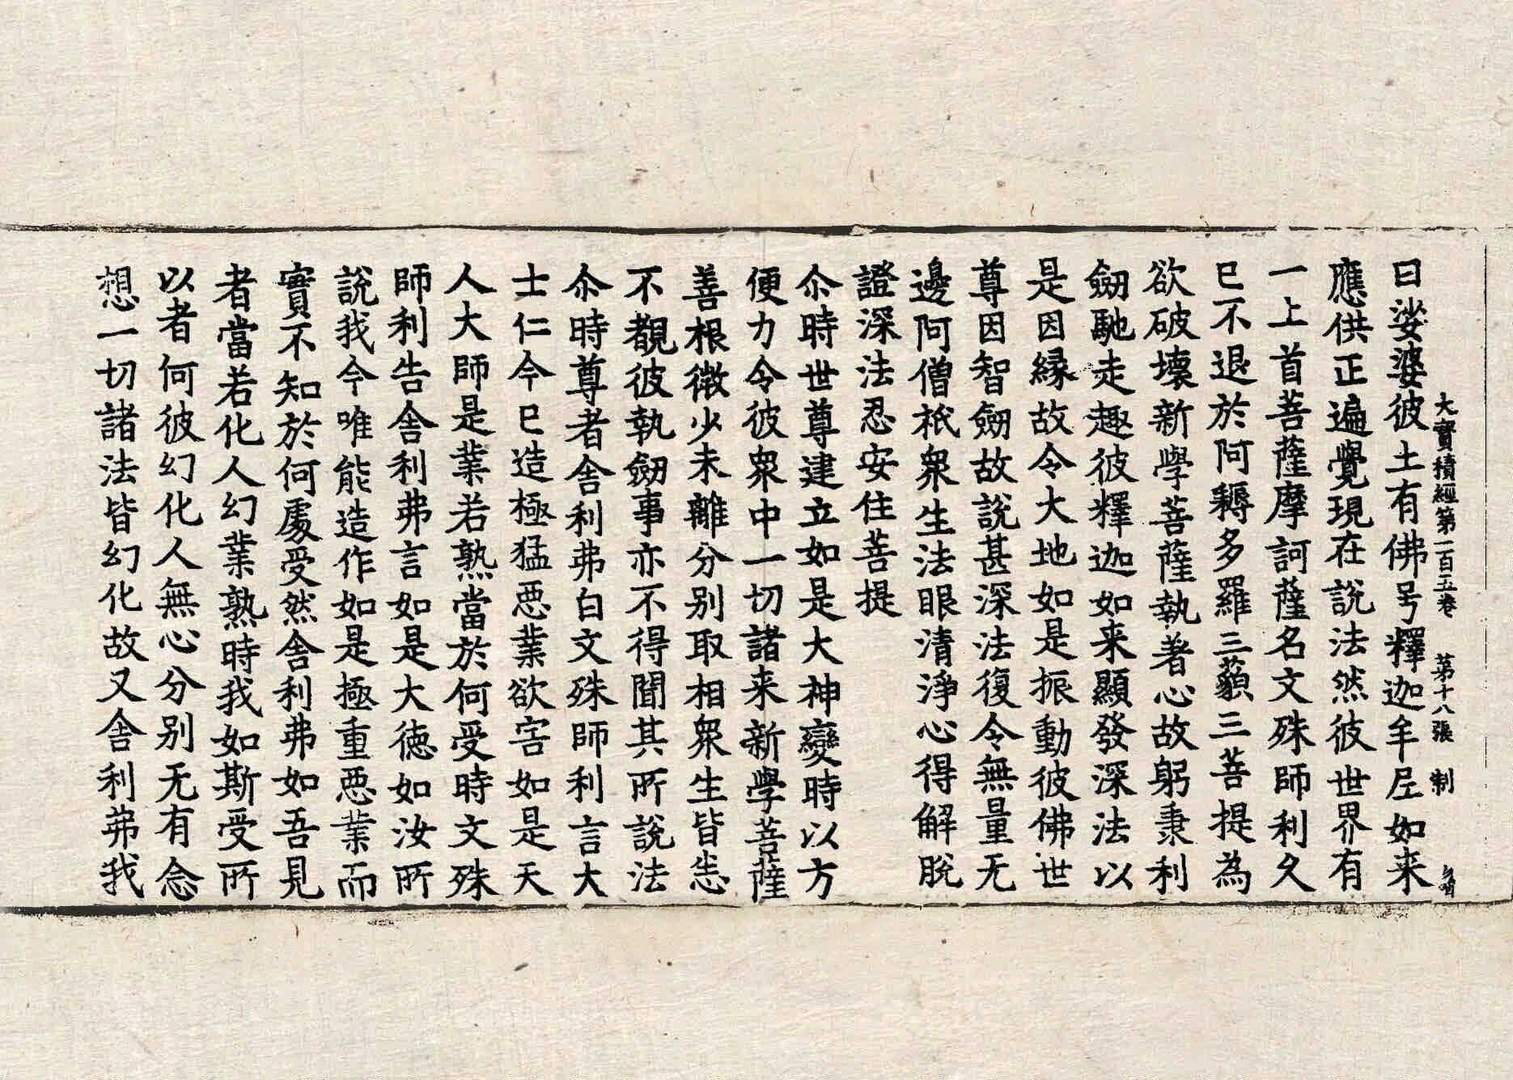 大寶積經第一百五卷 第十八張 制
曰娑婆彼土有佛号釋迦牟尼如来
應供正遍覺現在說法然彼世界有
一上首菩薩摩訶薩名文殊師利久
已不退於阿耨多羅三藐三菩提為
欲破壞新學菩薩執著心故躬秉利
劔馳走趣彼釋迦如来顯發深法以
是因縁故令大地如是振動彼佛世
尊因智劔故說甚深法復令無量无
邊阿僧祇衆生法眼清淨心得解脫
證深法忍安住菩提
尒時世尊建立如是大神變時以方
便力令彼衆中一切諸来新學菩薩
善根微少未離分别取相衆生皆悉
不覩彼執劔事亦不得聞其所說法
尒時尊者舎利弗白文殊師利言大
士仁今已造極猛惡業欲害如是天
人大師是業若熟當於何受時文殊
師利告舎利弗言如是大德如汝所
說我今唯能造作如是極重惡業而
實不知於何處受然舎利弗如吾見
者當若化人幻業熟時我如斯受所
以者何彼幻化人無心分别无有念
想一切諸法皆幻化故又舎利弗我